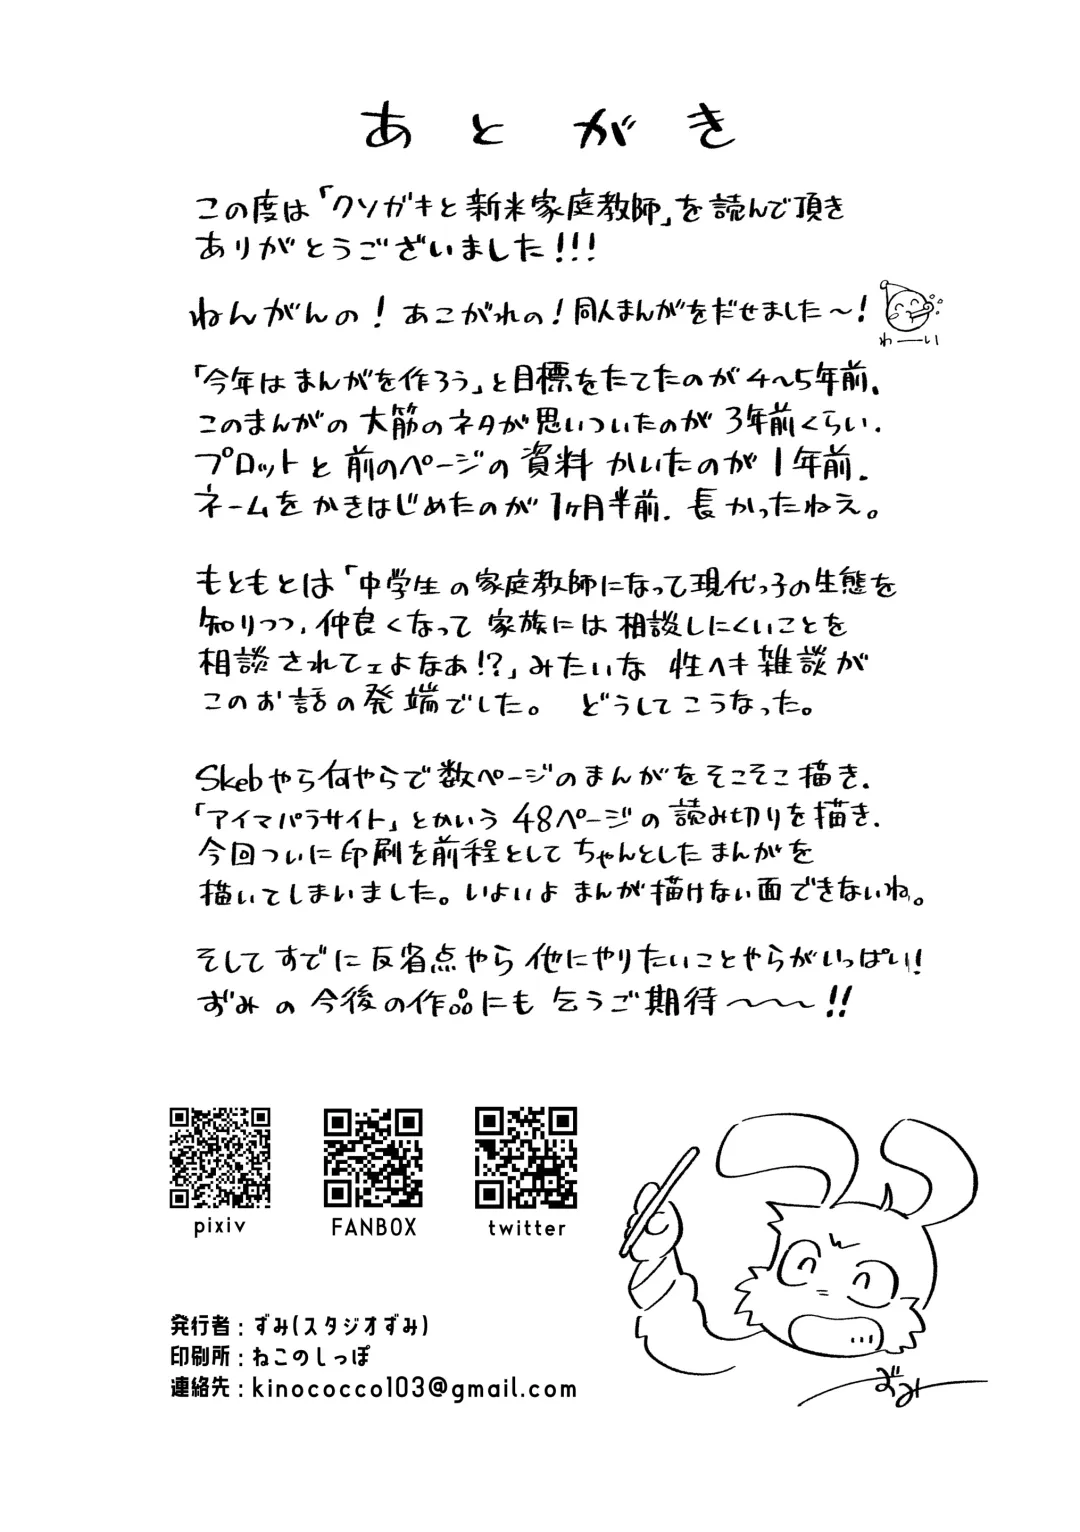 あとがき
この度は「クソガキと新米家庭教師」を読んで頂き
ありがとうございました!!!
ねんがんの!あこがれの!同人まんがをだせました〜!
わーい
「今年はまんがを作ろう」と目標をたてたのが4〜5年前、
このまんがの大筋のネタが思いついたのが3年前くらい、
プロットと前のページの資料かいたのが1年前、
ネームをかきはじめたのが1ヶ月半前、長かったねえ。
もともとは「中学生の家庭教師になって現代っ子の生態を
知りつつ、仲良くなって家族には相談しにくいことを
相談されてェよなあ!?」みたいな性ヘキ雑談が
このお話の発端でした。 どうしてこうなった。
Skebやら何やらで数ページのまんがをそこそこ描き、
「アイマパラサイト」とかいう48ページの読み切りを描き、
今回ついに印刷を前程としてちゃんとしたまんがを
描いてしまいました。いよいよまんが描けない面できないね。
そしてすでに反省点やら他にやりたいことやらがいっぱい!
ずみの今後の作品にも乞うご期待〜〜〜!!
pixiv
FANBOX
twitter
発行者:ずみ(スタジオずみ)
印刷所:ねこのしっぽ
連絡先:kinococco103@gmail.com
ずみ